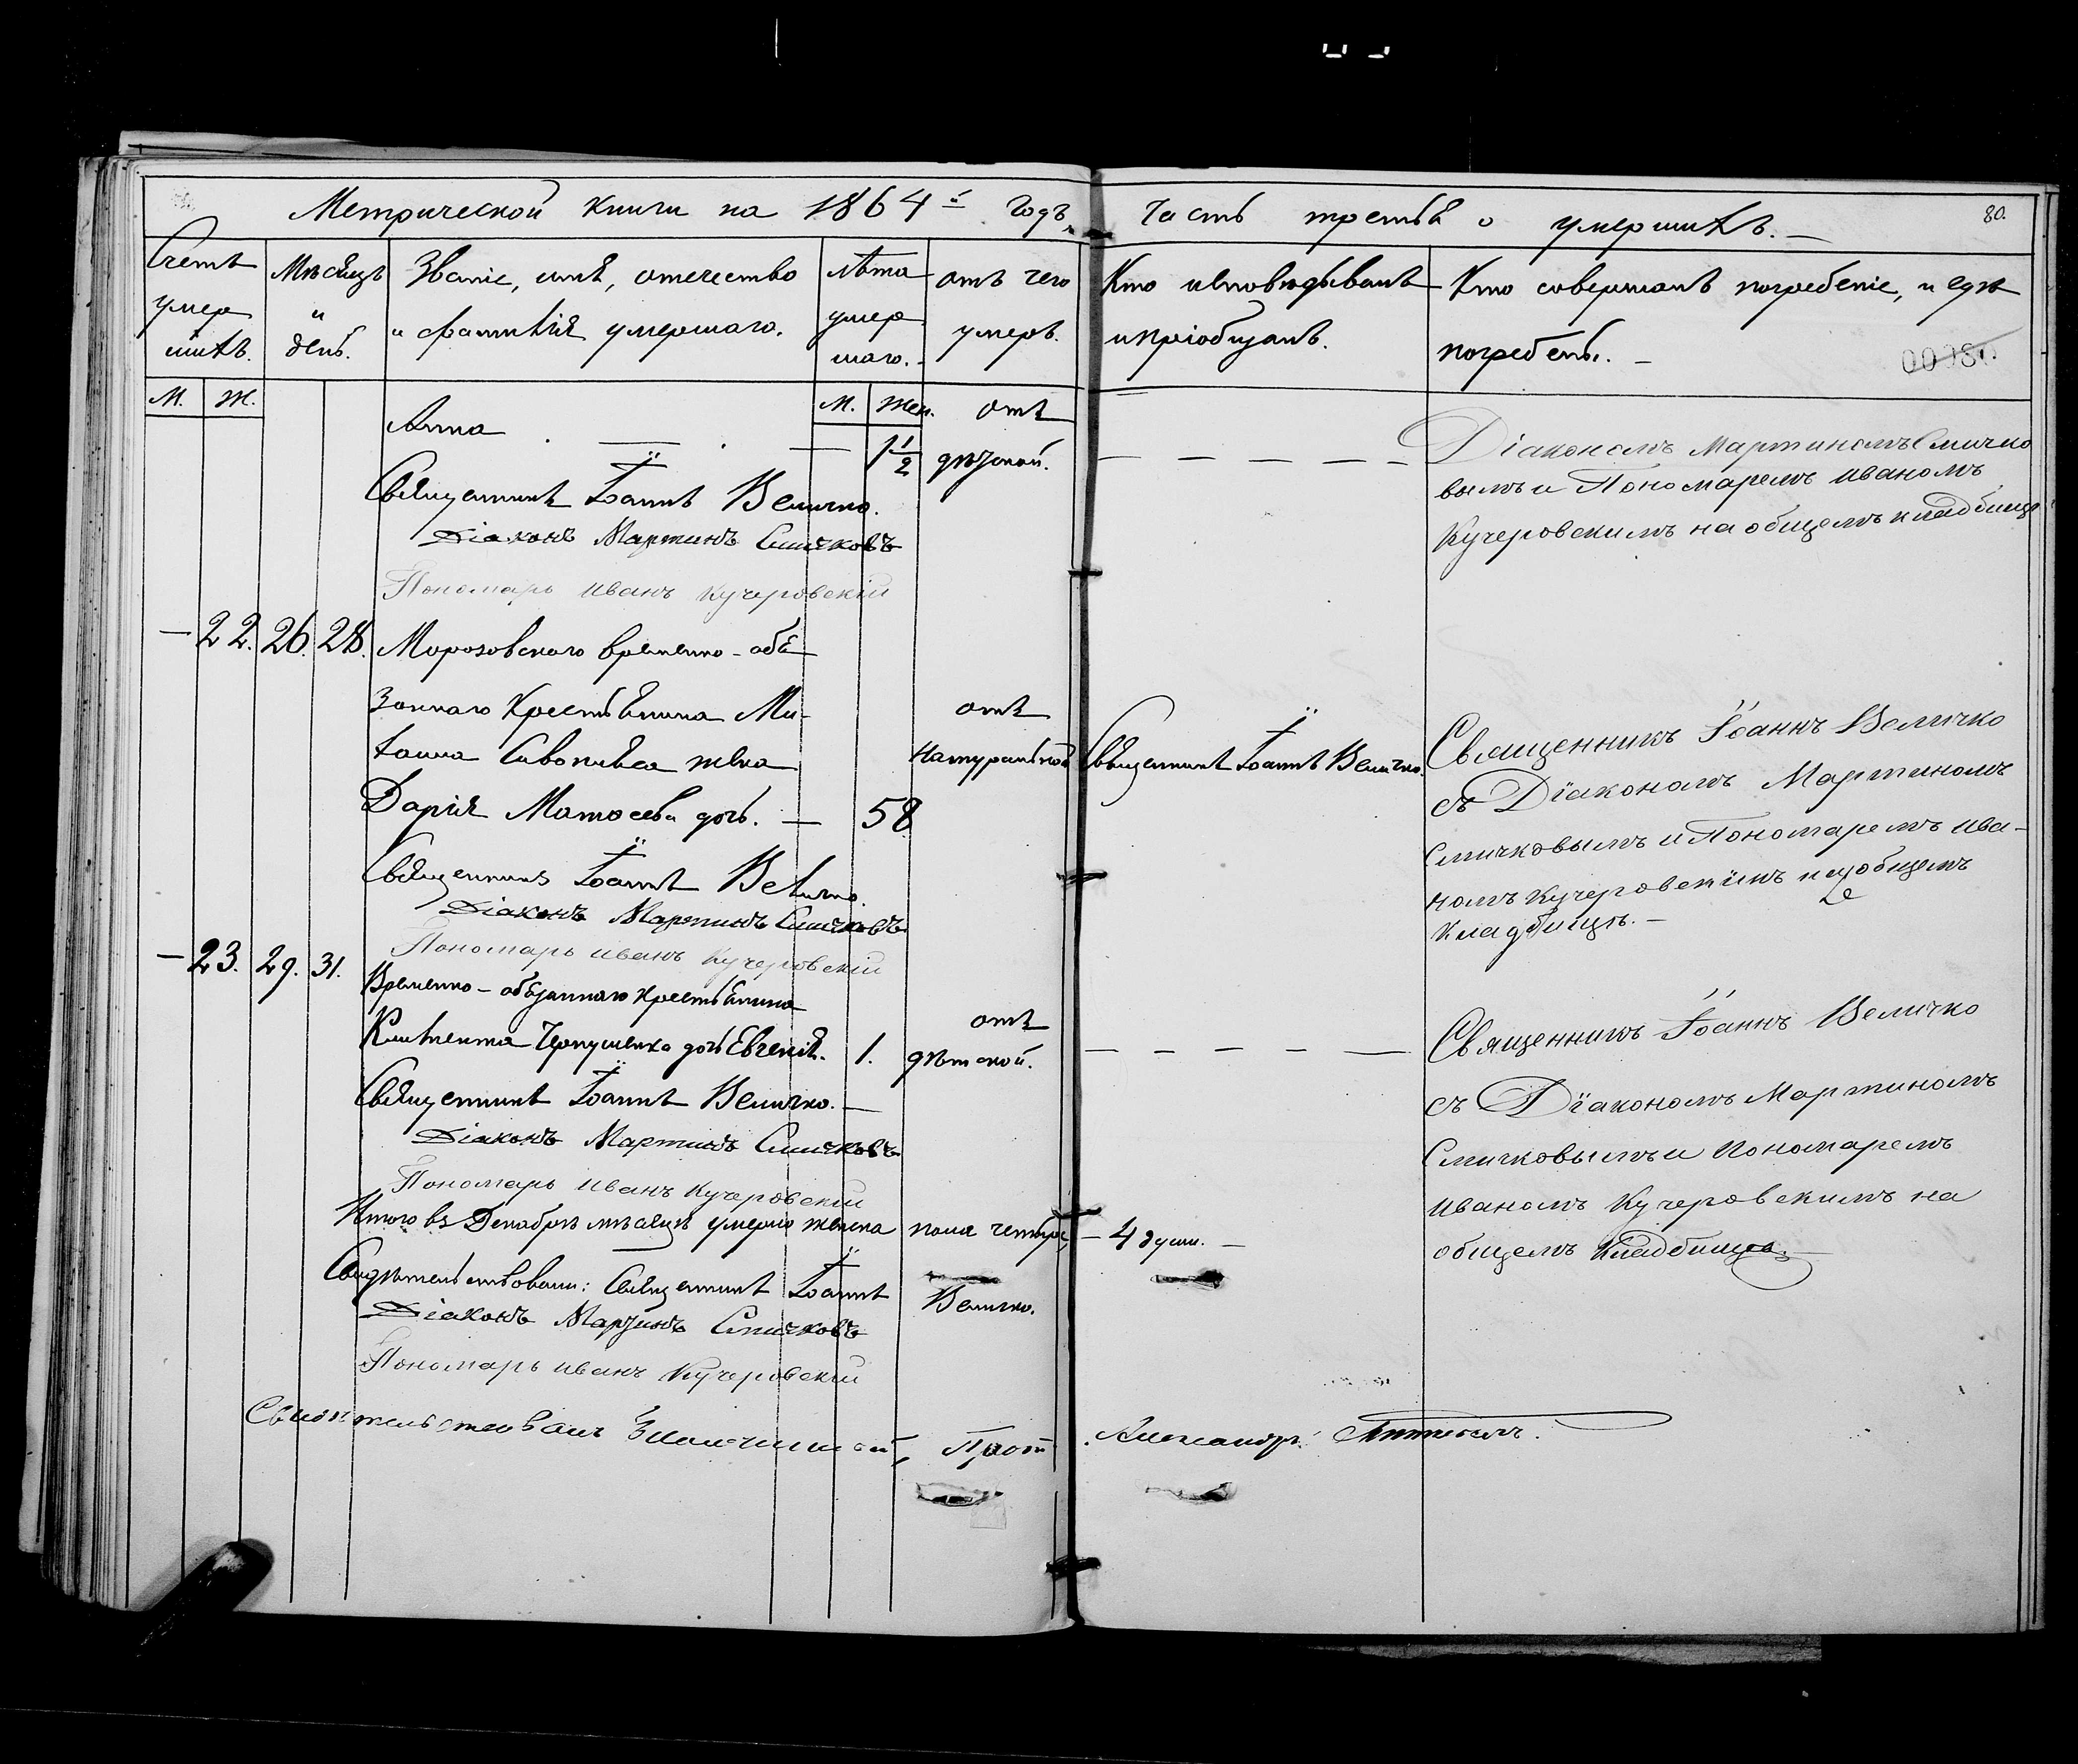 Метрической книги на 1864й годъ,
Часть третья о умершихъ. —
80.
Счетъ умер шихъ.
Мѣсяцъ и день.
Званіе, имя, отечество
и фамилія умершаго.
Лѣта умер шаго. -
отъ чего умеръ.
Кто исповѣдывалъ
и пріобщалъ.
Кто совершалъ погребеніе, и гдѣ
погребены. —
М. Ж.
М. Жен.
Анна — — 1 1/2
отъ
дѣтской.
— — — — —
Діакономъ Мартиномъ Смичко
вымъ и Пономаремъ Иваномъ
Кучеровскимъ на общемъ кладбищѣ
Священникъ Іоаннъ Величко.
Діаконъ Мартинъ Смичковъ
Пономарь Иванъ Кучеровскій
— 22. 26. 28. Морозовскаго временно-обя
заннаго Крестьянина Ми-
жена
Дарія Матѳеева дочь. — 58
отъ
натуральной
Священникъ Іоаннъ Величко.
Священникъ Іоаннъ Величко
съ Діакономъ Мартиномъ
Смичковымъ и Пономаремъ Ива-
номъ Кучеровскимъ на общемъ
Кладбищѣ. —
Священникъ Іоаннъ Величко.
Діаконъ Мартинъ Смичковъ
Пономарь Иванъ Кучеровскій
— 23. 29. 31. Временно-обязаннаго Крестьянина
Климента дочь Евгенія. 1.
отъ
дѣтской.
— — — — —
Священникъ Іоаннъ Величко
съ Діакономъ Мартиномъ
Смичковымъ и Пономаремъ
Иваномъ Кучеровскимъ на
общемъ Кладбищѣ. —
Священникъ Іоаннъ Величко. —
Діаконъ Мартинъ Смичковъ
Пономарь Иванъ Кучеровскій
Итого въ Декабрѣ мѣсяцѣ умерло женска пола четыре, — 4 души. —
Свидѣтельствовали: Священникъ Іоаннъ Величко.
Діаконъ Мартинъ Смичковъ
Пономарь Иванъ Кучеровскій
Свидѣтельствовалъ Прот. Александръ